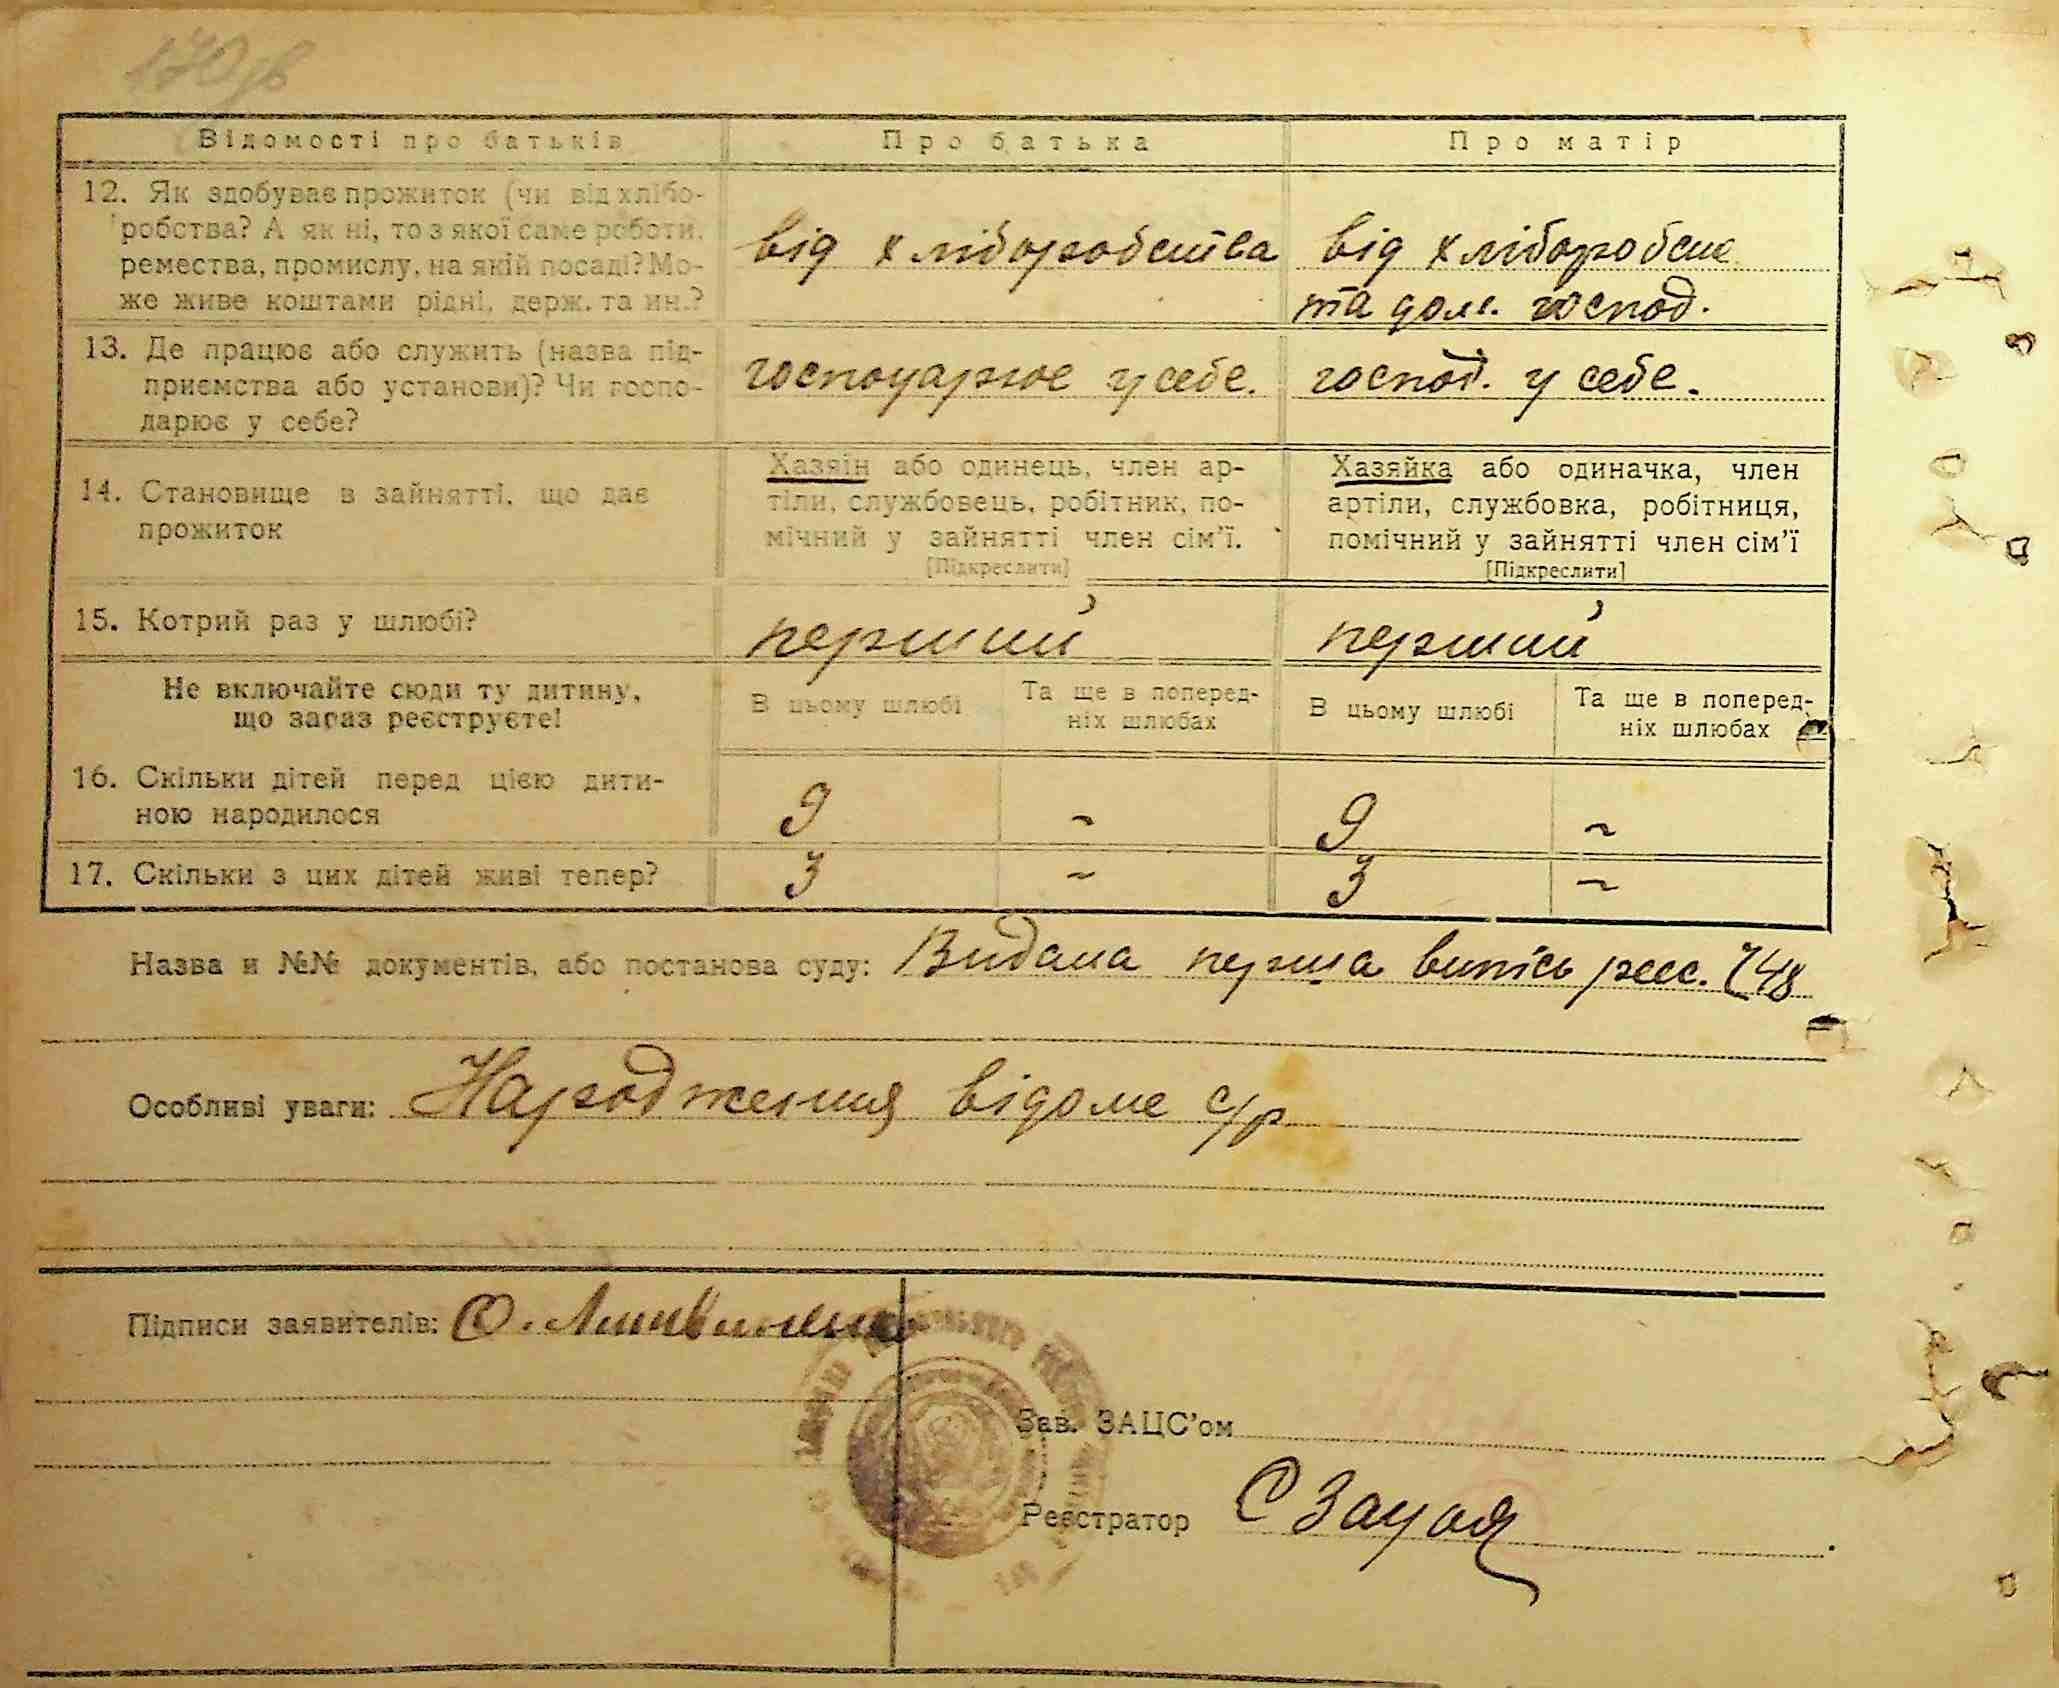 170 зв
Відомості про батьків
Про батька
Про матір
12. Як здобуває прожиток (чи від хлібо-
робства? А як ні, то з якої саме роботи,
ремества, промислу, на якій посаді? Мо-
же живе коштами рідні, держ. та ин.?
від хліборобства
від хліборобств
та дом. господ.
13. Де працює або служить (назва під-
приємства або установи)? Чи госпо-
дарює у себе?
господарює у себе.
господ. у себе.
14. Становище в зайнятті, що дає
прожиток
Хазяін або одинець, член ар-
тіли, службовець, робітник, по-
мічний у зайнятті член сім'ї.
[Підкреслити]
Хазяйка або одиначка, член
артіли, службовка, робітниця,
помічний у зайнятті член сім'ї
[Підкреслити]
15. Котрий раз у шлюбі?
перший
перший
Не включайте сюди ту дитину,
що зараз реєструєте!
В цьому шлюбі
Та ще в поперед-
ніх шлюбах
В цьому шлюбі
Та ще в поперед-
ніх шлюбах
16. Скільки дітей перед цією дити-
ною народилося
9 ~ 9 ~
17. Скільки з цих дітей живі тепер?
3 ~ 3 ~
Назва и №№ документів, або постанова суду: Видана перша випісь реєс. 748
Особливі уваги: Народження відоме с/р
Підписи заявителів: О. Литвиненко
Зав. ЗАЦС'ом
Реєстратор С